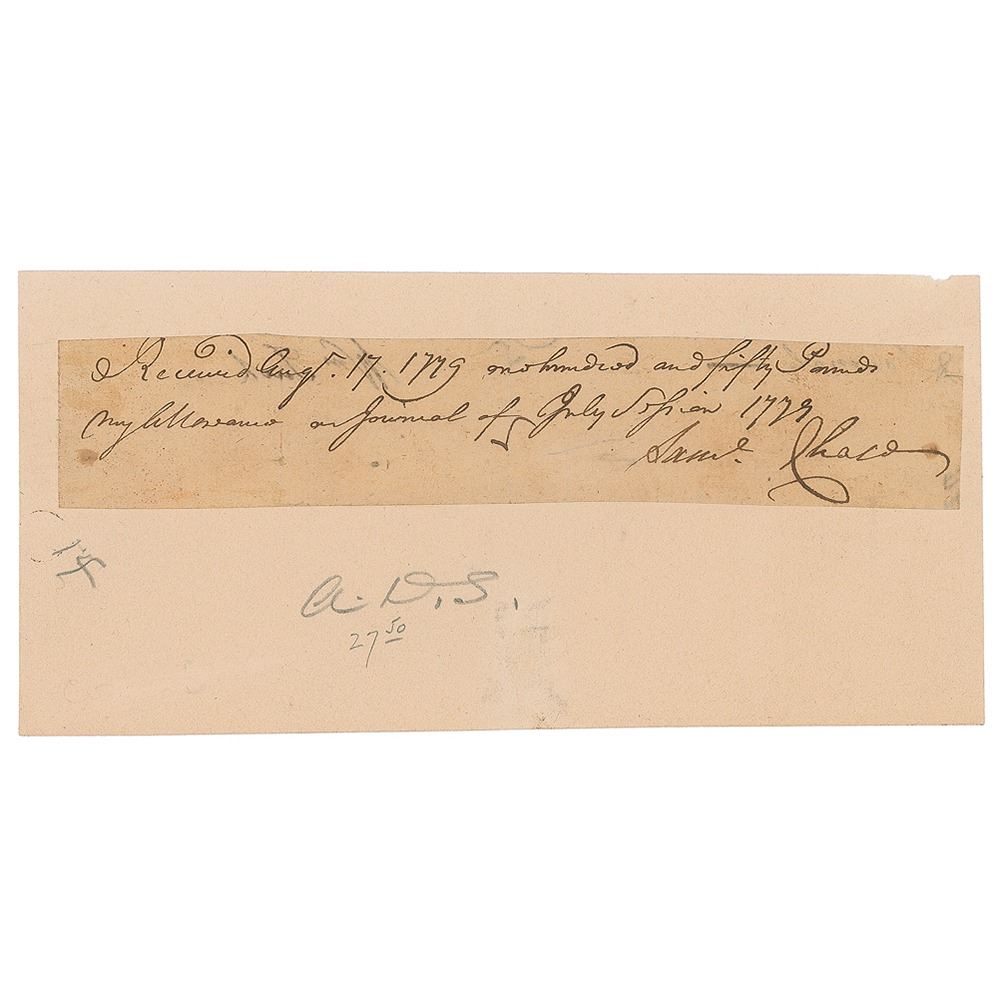 Received Augt. 17. 1779 one hundred and fifty Pounds
my Allowance on Journal of July Session 1779
Saml. Chase
A. D. S.
27 50